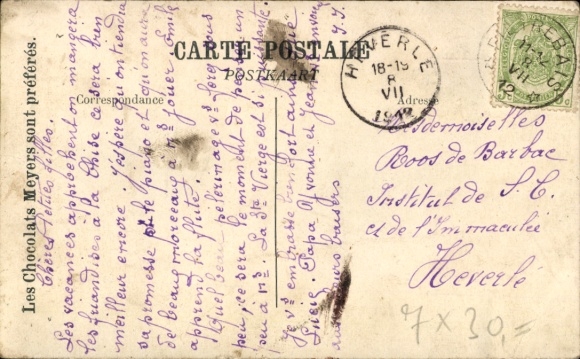 Les Chocolats Meyers sont préférés.
CARTE POSTALE
POSTKAART
Correspondance
Adresse
HEVERLE
18-19
8
VII
1912
8
VII
12
Chères Petites filles.
Les vacances approchent on mangera
les friandises à la Chise ce sera bien
meilleur encore. J'espère qu'on tiendra
sa promesse pr le piano et qu'on aura
de beaux morceaux à ns jouer. Emile
apprend la flûte.
Quel beau pélerinage vs ferez sous
peu, ce sera le moment de penser un
peu à ns. La Ste Vierge est si puissante.
Je vs embrasse bien fort ainsi que
Papa Yvonne et Jean
baisers
Mesdemoiselles
Roos de Barbac
Institut de S. C.
et de l'Immaculée
Heverlé
7 x 30,=